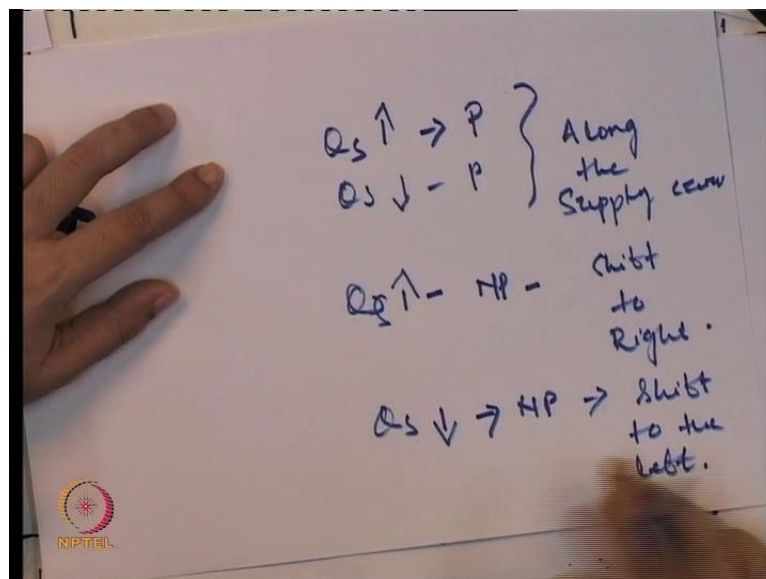 Qs ↑ → P
Qs ↓ - P
Along
the
Supply curve
Qs ↑ - NP - Shift
to
Right.
Qs ↓ → NP → Shift
to the
left.
NPTEL